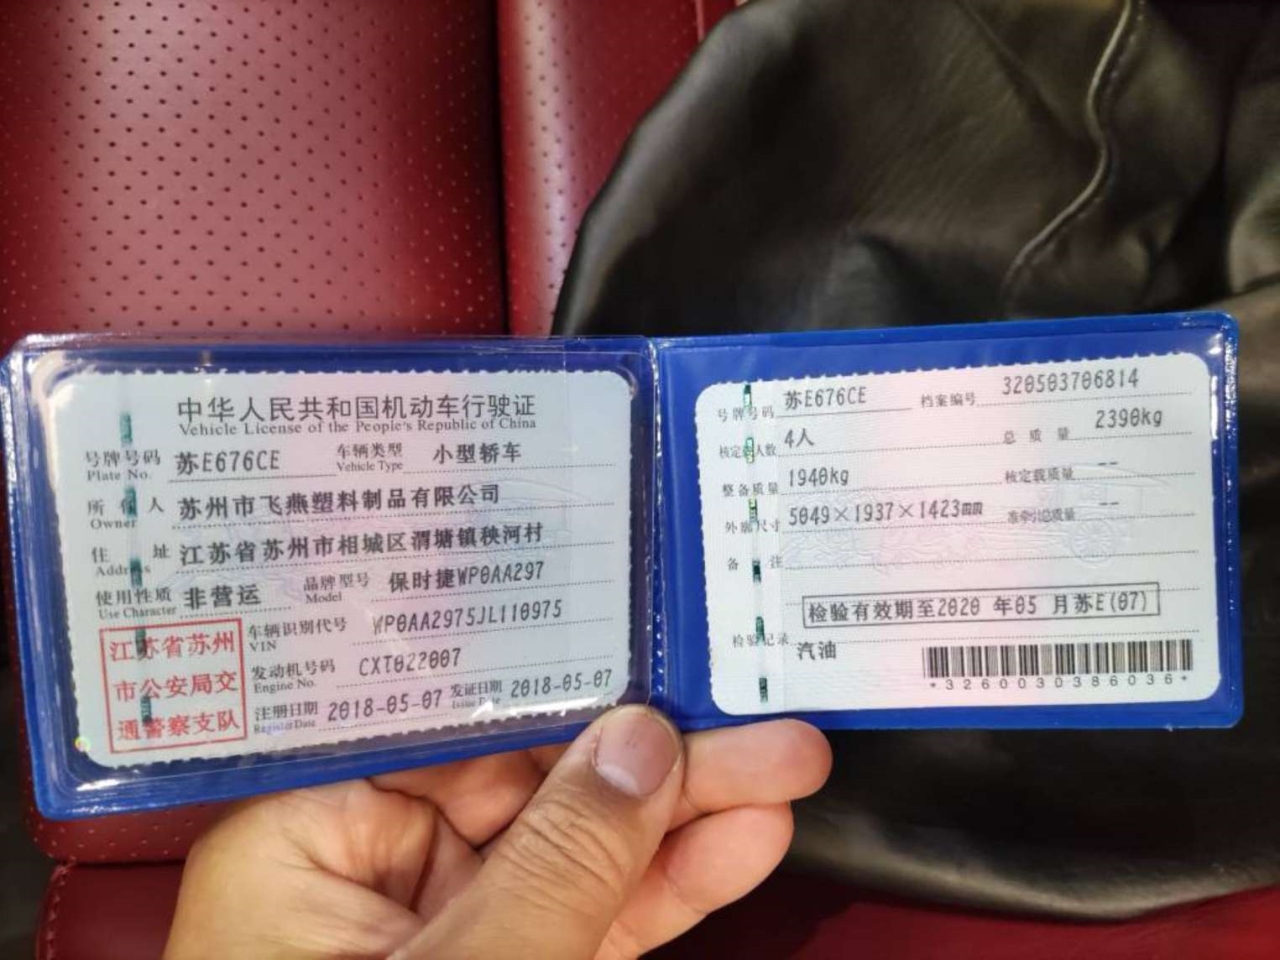 中华人民共和国机动车行驶证
Vehicle License of the People's Republic of China
号牌号码 苏E676CE 车辆类型 小型轿车
Plate No. Vehicle Type
所有人 苏州市飞燕塑料制品有限公司
Owner
住址 江苏省苏州市相城区渭塘镇秧河村
Address
使用性质 非营运 品牌型号 保时捷WP0AA297
Use Character Model
江苏省苏州
市公安局交
通警察支队
车辆识别代号 WP0AA2975JL110975
VIN
发动机号码 CXT022007
Engine No.
注册日期 2018-05-07 发证日期 2018-05-07
Register Date Issue Date
号牌号码 苏E676CE 档案编号 320503706814
核定载人数 4人 总质量 2390kg
整备质量 1940kg 核定载质量 --
外廓尺寸 5049×1937×1423mm 准牵引总质量 --
备注
检验有效期至2020 年05 月苏E(07)
检验记录 汽油
*3260030386036*